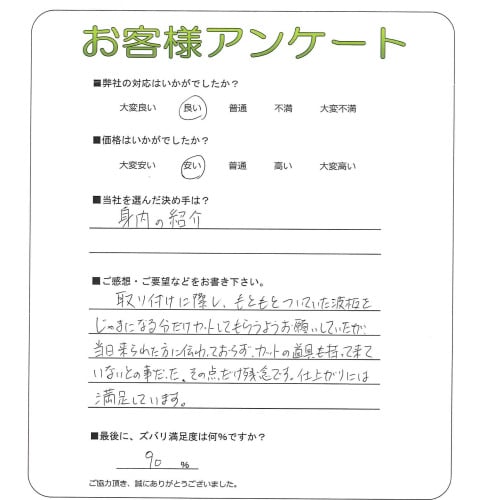 お客様アンケート
■弊社の対応はいかがでしたか?
大変良い 良い 普通 不満 大変不満
■価格はいかがでしたか?
大変安い 安い 普通 高い 大変高い
■当社を選んだ決め手は?
身内の紹介
■ご感想・ご要望などをお書き下さい。
取り付けに際し、もともとついていた波板を
じゃまになる分だけカットしてもらうようお願いしていたが
当日来られた方に伝わっておらず、カットの道具も持って来て
いないとの事だった、その点だけ残念です。仕上がりには
満足しています。
■最後に、ズバリ満足度は何%ですか?
90 %
ご協力頂き、誠にありがとうございました。